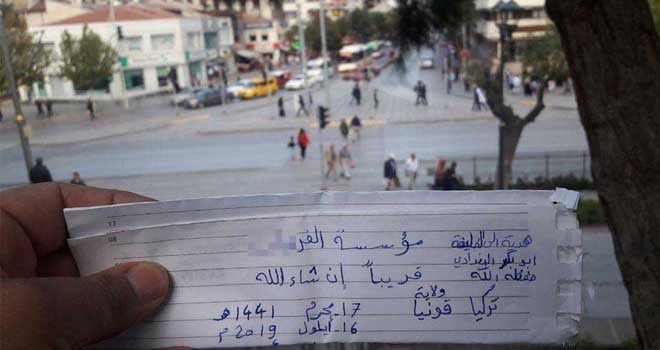 هدية الى الخليفة
ابو بكر البغدادي
حفظه الله
مؤسسة
قريباً إن شاء الله
ولاية
تركيا قونيا
17 محرم 1441هـ
16 أيلول 2019م
08